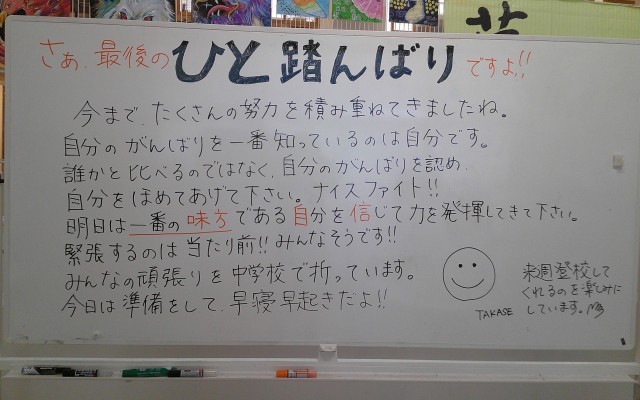 さぁ、最後のひと踏んばりですよ!!
今まで、たくさんの努力を積み重ねてきましたね。
自分のがんばりを一番知っているのは自分です。
誰かと比べるのではなく、自分のがんばりを認め、
自分をほめてあげて下さい。ナイスファイト!!
明日は一番の味方である自分を信じて力を発揮してきて下さい。
緊張するのは当たり前!!みんなそうです!!
みんなの頑張りを中学校で祈っています。
今日は準備をして、早寝早起きだよ!!
TAKASE
来週登校して
くれるのを楽しみに
しています。